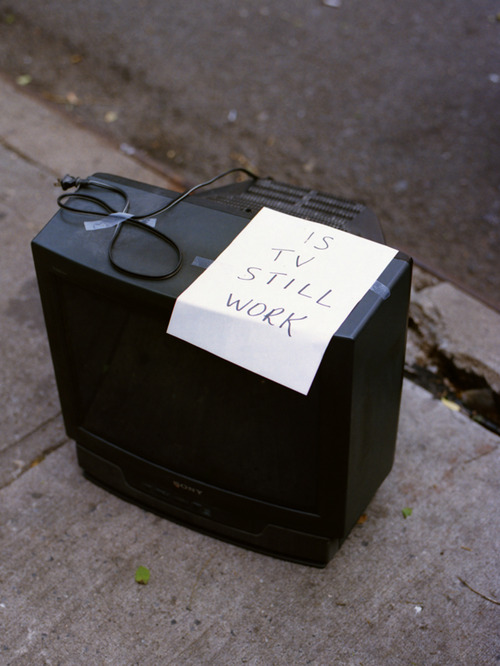 IS
TV
STILL
WORK
SONY